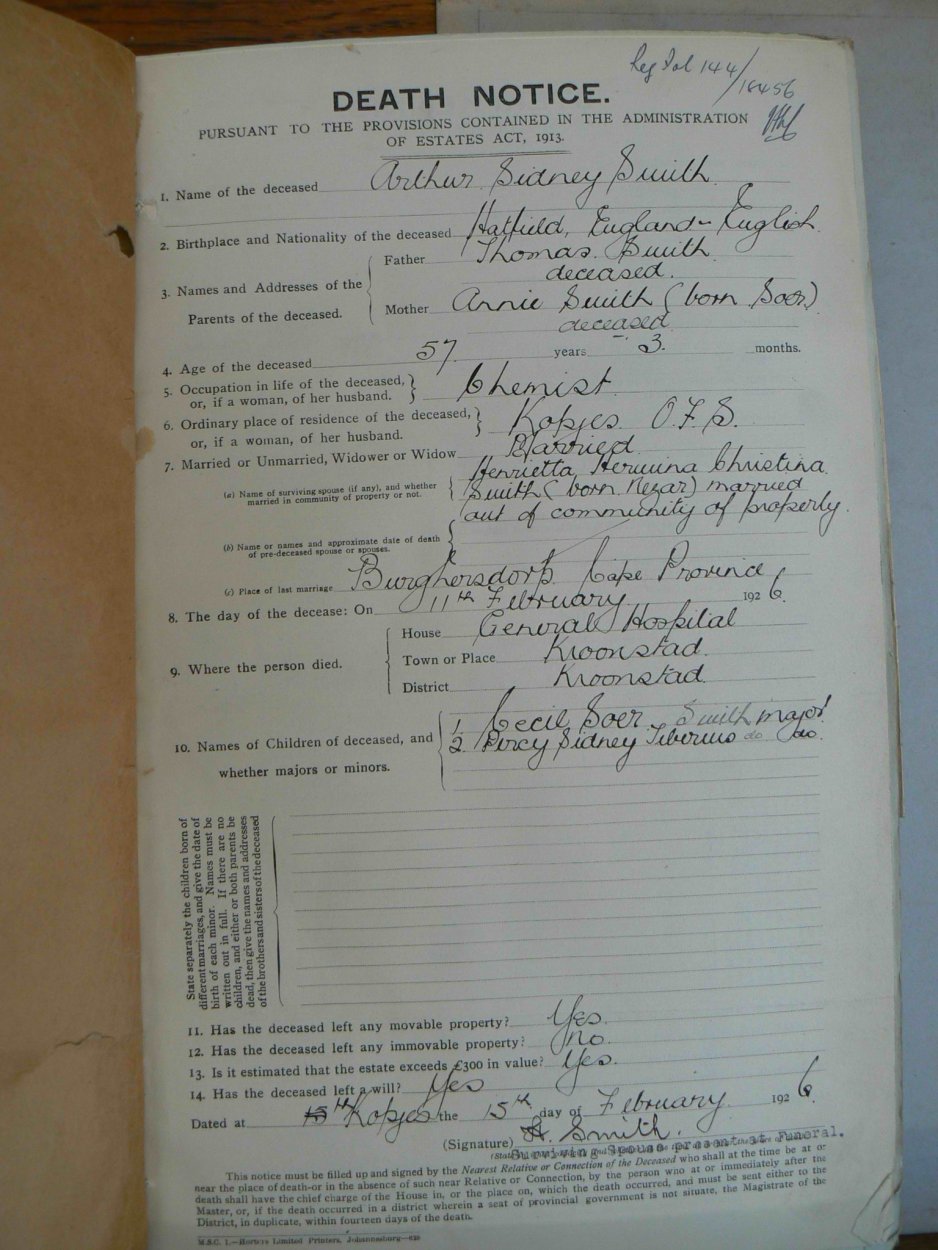 Reg Fol 144/
18456
DEATH NOTICE.
PURSUANT TO THE PROVISIONS CONTAINED IN THE ADMINISTRATION
OF ESTATES ACT, 1913.
1. Name of the deceased Arthur Sidney Smith
2. Birthplace and Nationality of the deceased Hatfield, England - English
3. Names and Addresses of the Parents of the deceased.
Father Thomas Smith
deceased.
Mother Annie Smith (born Soer)
deceased
4. Age of the deceased 57 years - 3. months.
5. Occupation in life of the deceased, or, if a woman, of her husband. } Chemist
6. Ordinary place of residence of the deceased, or, if a woman, of her husband. } Kopjes O.F.S.
7. Married or Unmarried, Widower or Widow Married
(a) Name of surviving spouse (if any), and whether married in community of property or not.
Henrietta Hermina Christina
Smith (born) married
out of community of property.
(b) Name or names and approximate date of death of pre-deceased spouse or spouses.
(c) Place of last marriage Burghersdorp Cape Province
8. The day of the decease: On 11th February 1926.
9. Where the person died.
House General Hospital
Town or Place Kroonstad.
District Kroonstad.
10. Names of Children of deceased, and whether majors or minors.
1. Cecil Soer Smith major
2. Percy Sidney Tiberius do do.
State separately the children born of
different marriages, and give the date of
birth of each minor. Names must be
written out in full. If there are no
children, and either or both parents be
dead, then give the names and addresses
of the brothers and sisters of the deceased
11. Has the deceased left any movable property? Yes.
12. Has the deceased left any immovable property? No.
13. Is it estimated that the estate exceeds £300 in value? Yes.
14. Has the deceased left a will? Yes
Dated at Kopjes the 15th day of February 1926.
(Signature) H. Smith.
Surviving Spouse present at Funeral.
This notice must be filled up and signed by the Nearest Relative or Connection of the Deceased who shall at the time be at or
near the place of death—or in the absence of such near Relative or Connection, by the person who at or immediately after the
death shall have the chief charge of the House in, or the place on, which the death occurred, and must be sent either to the
Master, or, if the death occurred in a district wherein a seat of provincial government is not situate, the Magistrate of the
District, in duplicate, within fourteen days of the death.
M.S.C. 1.—Hortors Limited Printers, Johannesburg—